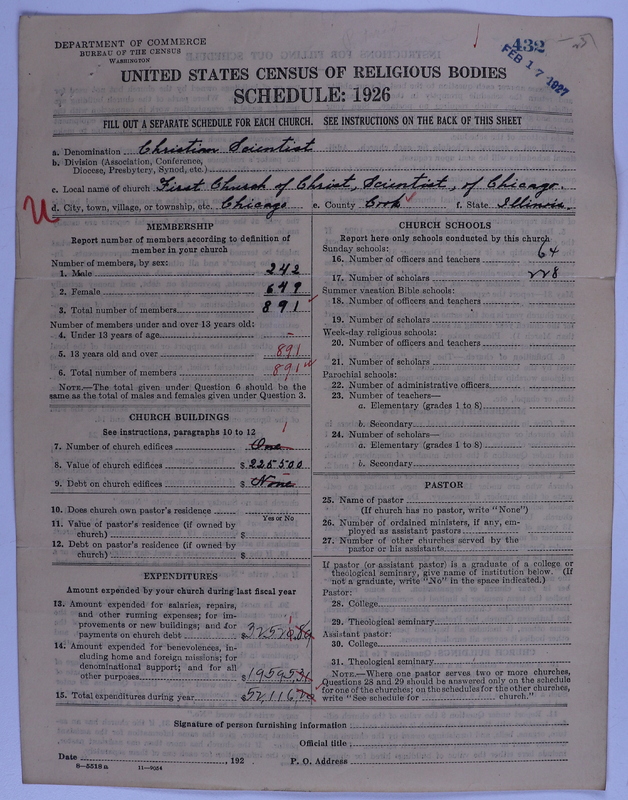 DEPARTMENT OF COMMERCE
BUREAU OF THE CENSUS
WASHINGTON
432
FEB 17 1927
UNITED STATES CENSUS OF RELIGIOUS BODIES
SCHEDULE: 1926
FILL OUT A SEPARATE SCHEDULE FOR EACH CHURCH. SEE INSTRUCTIONS ON THE BACK OF THIS SHEET
a. Denomination Christian Scientist
b. Division (Association, Conference,
Diocese, Presbytery, Synod, etc.)
c. Local name of church First Church of Christ, Scientist, of Chicago.
U d. City, town, village, or township, etc. Chicago e. County Cook f. State Illinois.
MEMBERSHIP
Report number of members according to definition of
member in your church
Number of members, by sex:
1. Male 242
2. Female 649
3. Total number of members 891
Number of members under and over 13 years old:
4. Under 13 years of age –
5. 13 years old and over 891
6. Total number of members 891
NOTE.—The total given under Question 6 should be the
same as the total of males and females given under Question 3.
CHURCH BUILDINGS
See instructions, paragraphs 10 to 12
7. Number of church edifices One 1
8. Value of church edifices $ 225500
9. Debt on church edifices $ None
10. Does church own pastor's residence
Yes or No
11. Value of pastor's residence (if owned by
church) $
12. Debt on pastor's residence (if owned by
church) $
EXPENDITURES
Amount expended by your church during last fiscal year
13. Amount expended for salaries, repairs,
and other running expenses; for im-
provements or new buildings; and for
payments on church debt $
14. Amount expended for benevolences, in-
cluding home and foreign missions; for
denominational support; and for all
other purposes $
15. Total expenditures during year $
CHURCH SCHOOLS
Report here only schools conducted by this church
Sunday schools:
16. Number of officers and teachers 64
17. Number of scholars 228
Summer vacation Bible schools:
18. Number of officers and teachers
19. Number of scholars
Week-day religious schools:
20. Number of officers and teachers
21. Number of scholars
Parochial schools:
22. Number of administrative officers
23. Number of teachers—
a. Elementary (grades 1 to 8)
b. Secondary
24. Number of scholars—
a. Elementary (grades 1 to 8)
b. Secondary
PASTOR
25. Name of pastor
(If church has no pastor, write "None")
26. Number of ordained ministers, if any, em-
ployed as assistant pastors
27. Number of other churches served by the
pastor or his assistants
If pastor (or assistant pastor) is a graduate of a college or
theological seminary, give name of institution below. (If
not a graduate, write "No" in the space indicated.)
Pastor:
28. College
29. Theological seminary
Assistant pastor:
30. College
31. Theological seminary
NOTE.—Where one pastor serves two or more churches,
Questions 28 and 29 should be answered only on the schedule
for one of the churches; on the schedules for the other churches,
write "See schedule for church."
Signature of person furnishing information
Official title
Date , 192 P. O. Address
8—5518a 11—9054